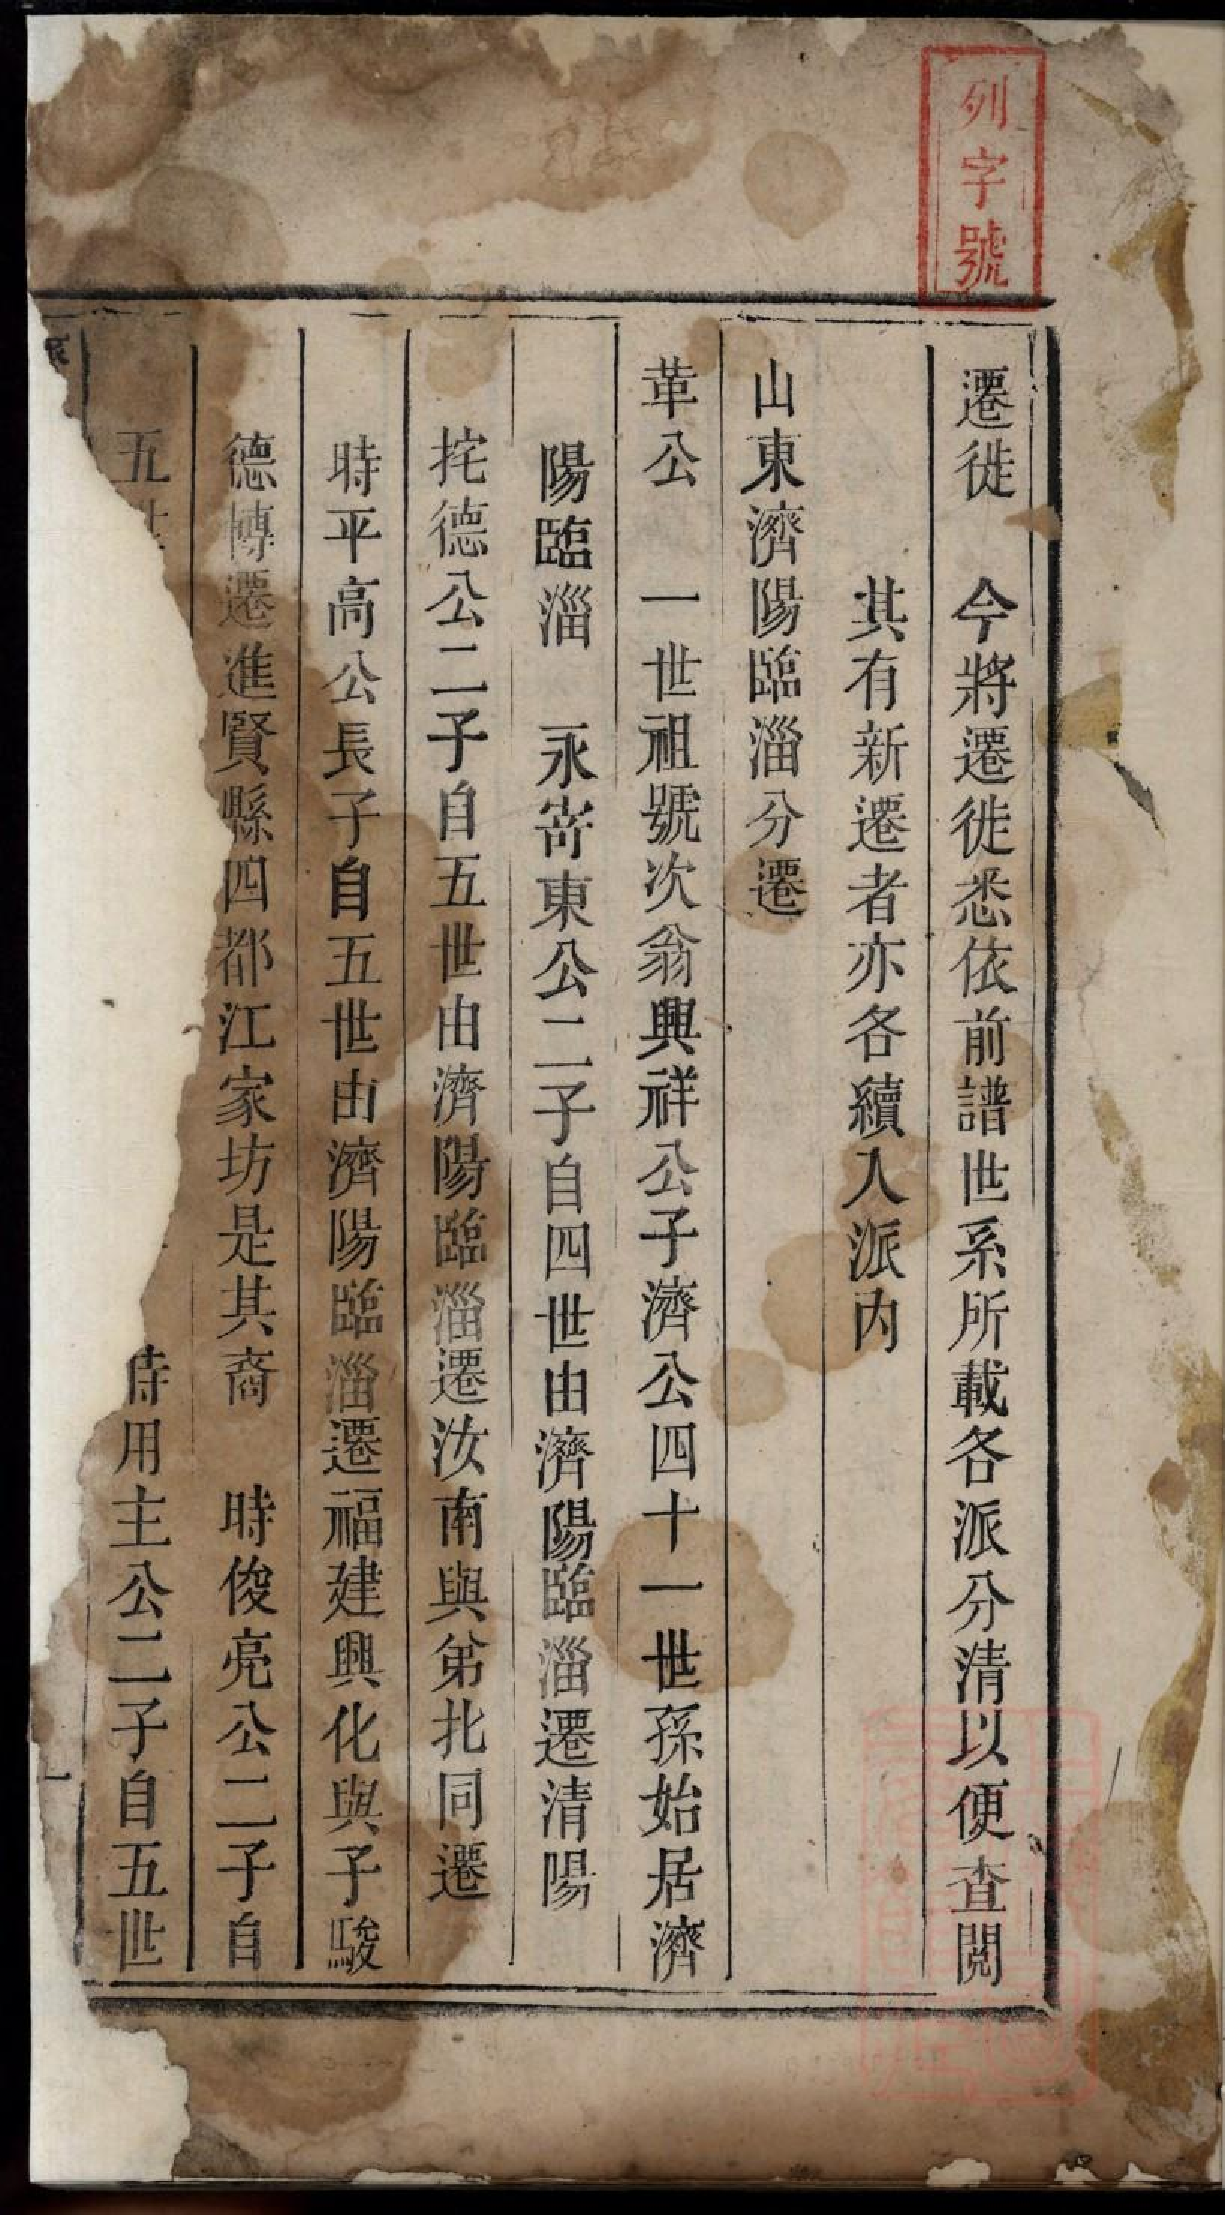 列字號
遷徙 今將遷徙悉依前譜世系所載各派分清以便查閱
其有新遷者亦各續入派内
山東濟陽臨淄分遷
革公 一世祖號次翁興祥公子濟公四十一世孫始居濟
陽臨淄 永嵜東公二子自四世由濟陽臨淄遷清陽
挓德公二子自五世由濟陽臨淄遷汝南與弟圠同遷
時平高公長子自五世由濟陽臨淄遷福建興化與子駿
德博遷進賢縣四都江家坊是其裔 時俊亮公二子自
五世 時用主公二子自五世